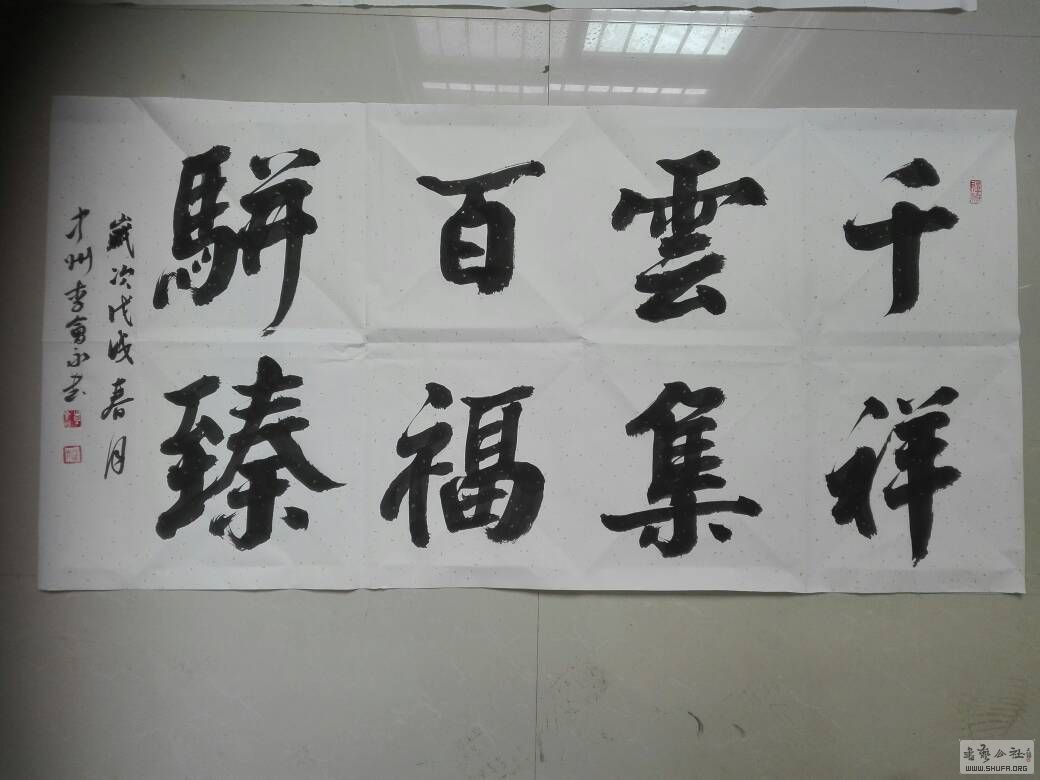 千祥
雲集
百福
駢臻
歲次戊戌春月
李
書艺公社
WWW.SHUFA.ORG